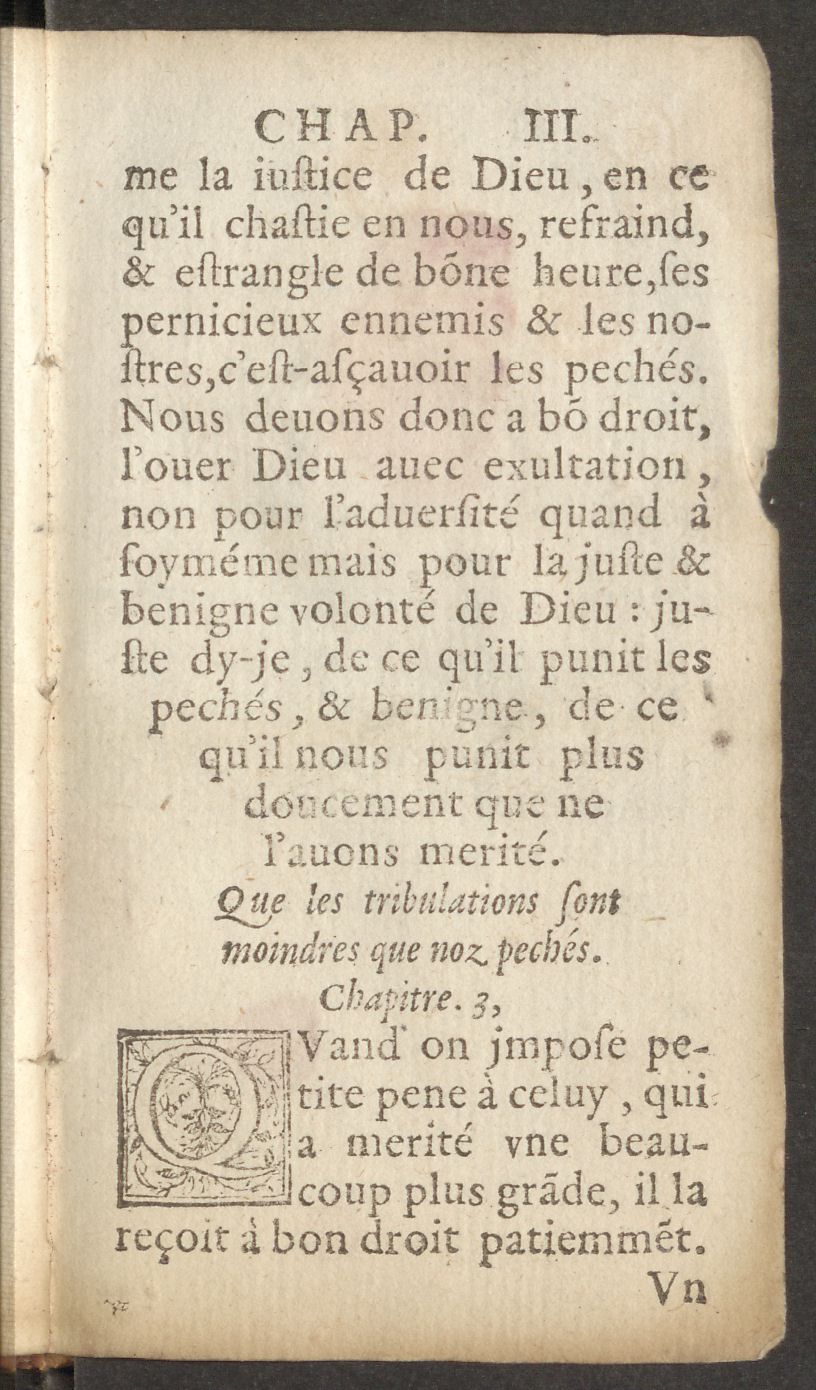 CHAP. III.
me la iuſtice de Dieu, en ce
qu'il chaſtie en nous, refraind,
& eſtrangle de bõne heure, ſes
pernicieux ennemis & les no-
ſtres, c'eſt-aſçauoir les pechés.
Nous deuons donc a bõ droit,
l'ouer Dieu auec exultation,
non pour l'aduerſité quand à
ſoyméme mais pour la juſte &
benigne volonté de Dieu : ju-
ſte dy-je, de ce qu'il punit les
pechés, & benigne, de ce
qu'il nous punit plus
doucement que ne
l'auons merité.
Que les tribulations ſont
moindres que noz pechés.
Chapitre. 3,
QVand on jmpoſe pe-
tite pene à celuy, qui
a merité vne beau-
coup plus grãde, il la
reçoit à bon droit patiemmẽt.
Vn